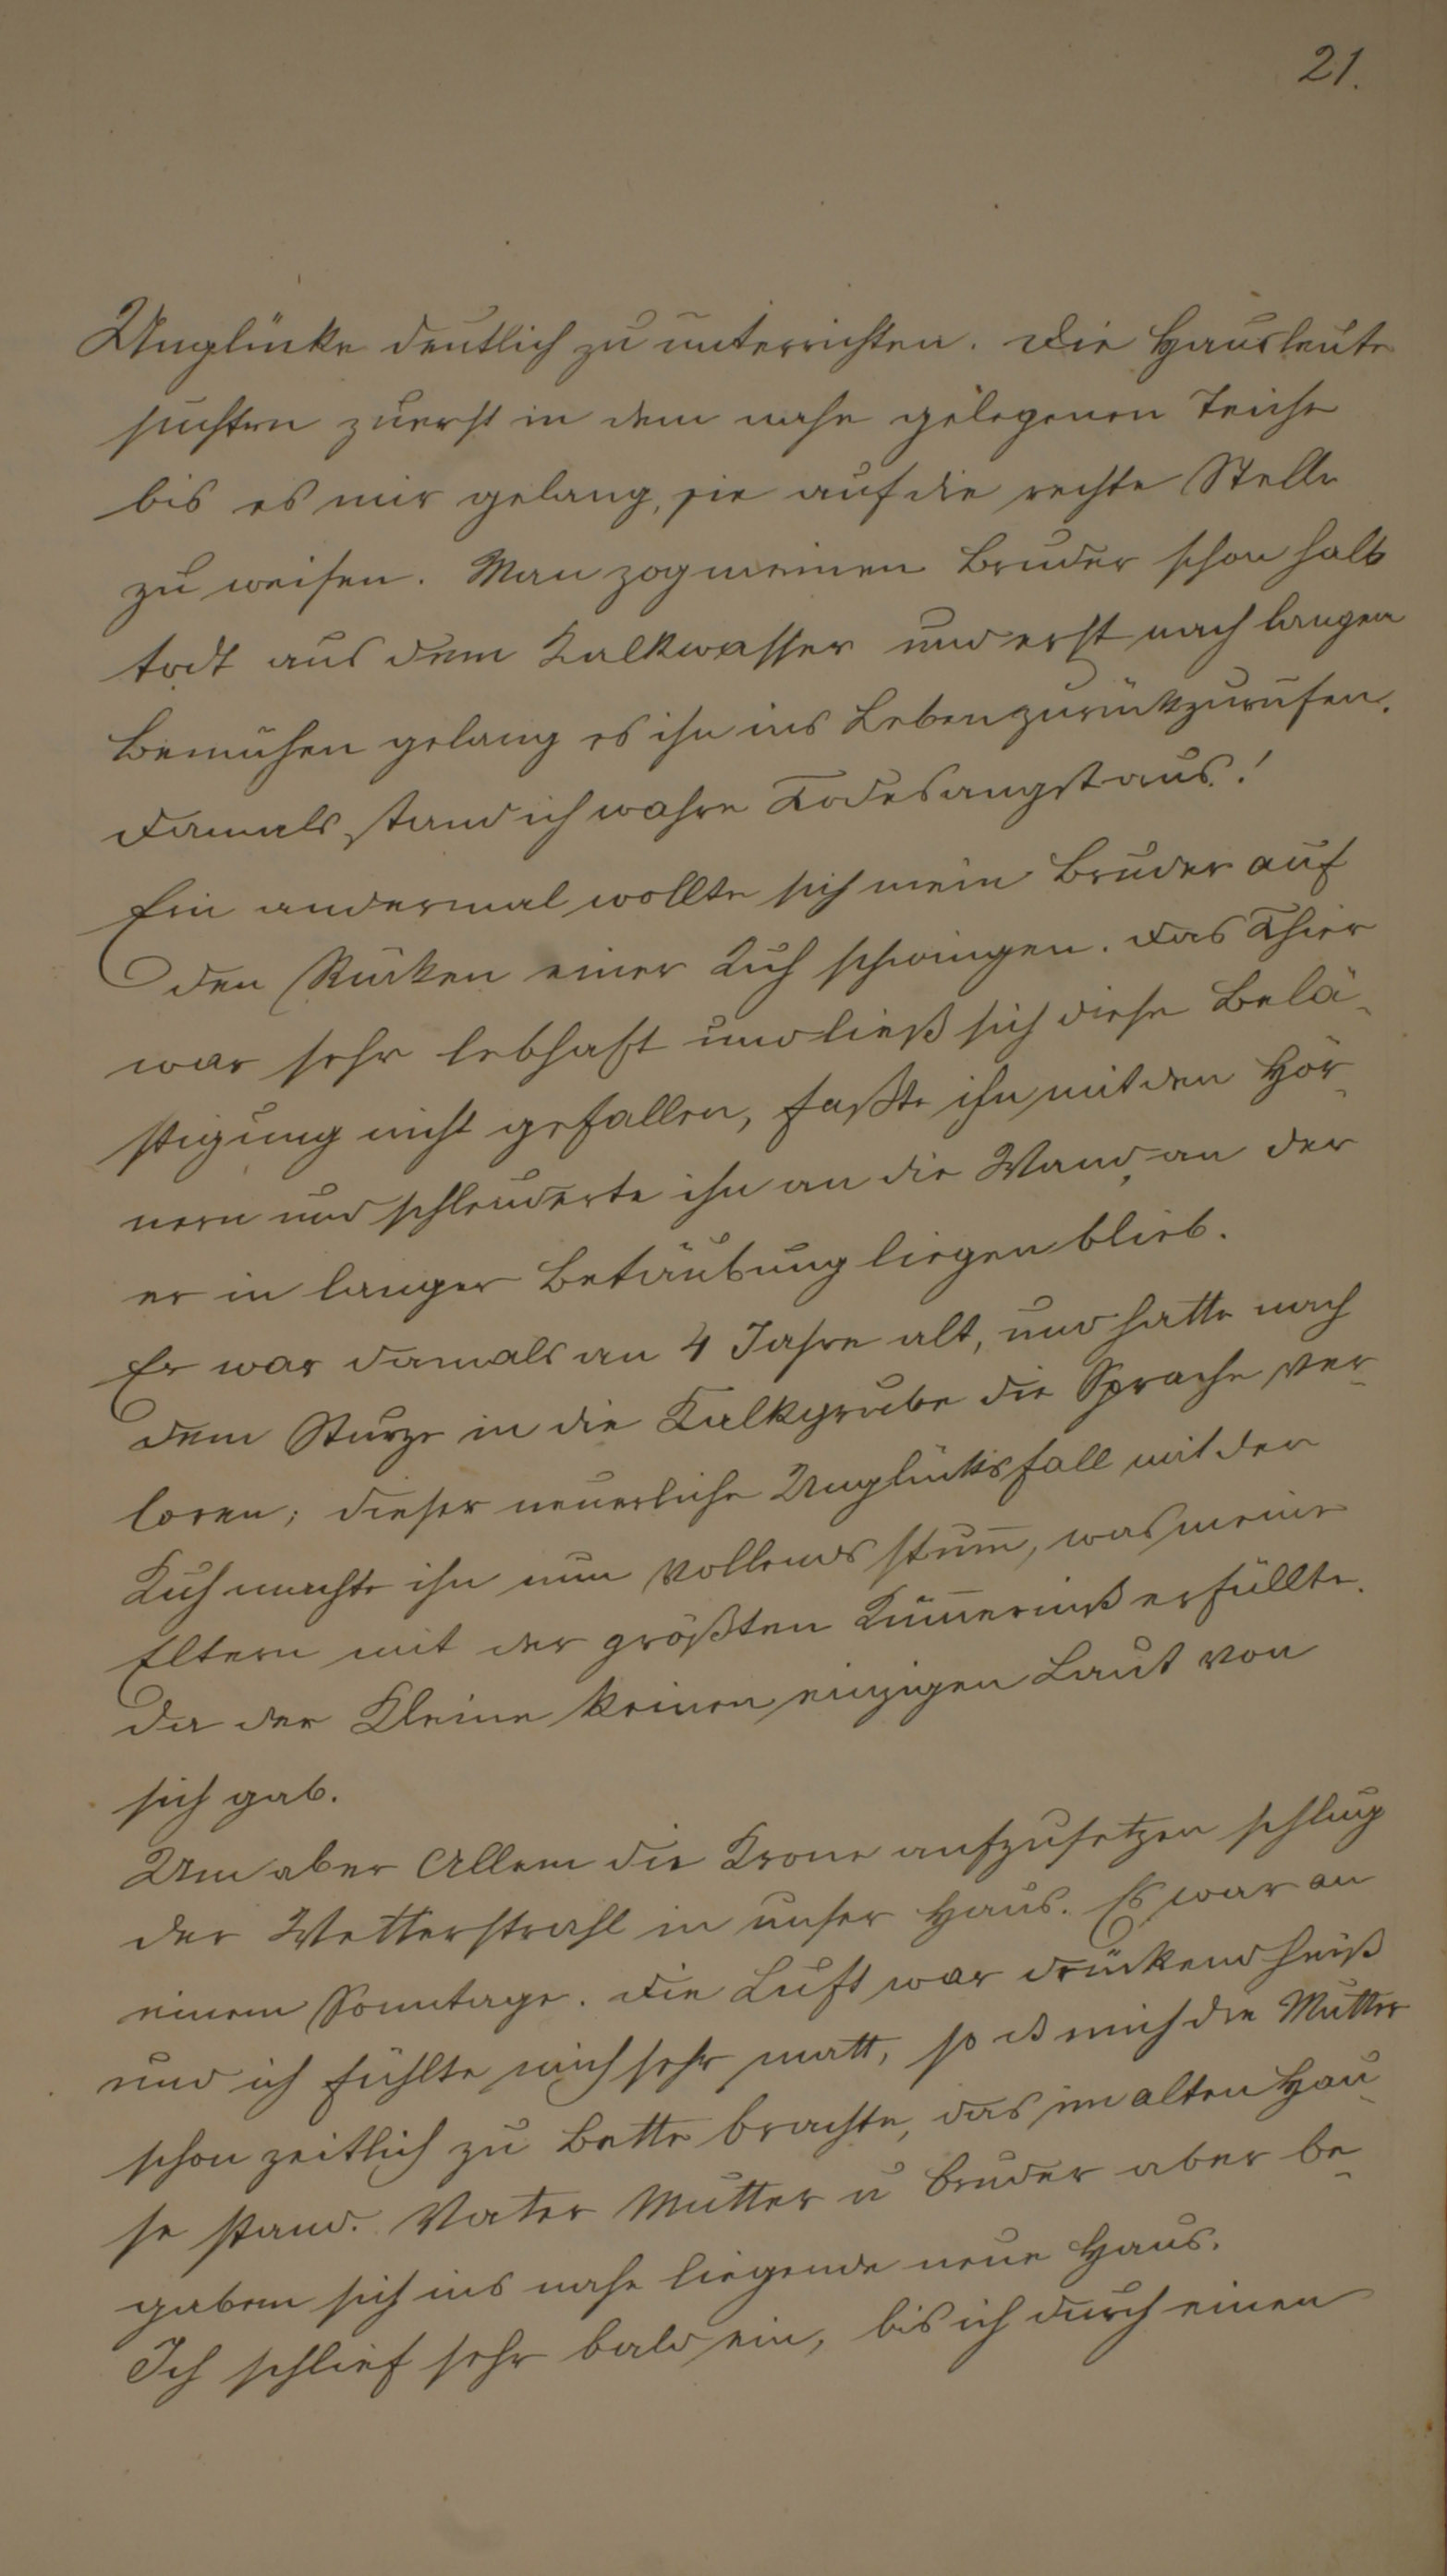 21.
Unglücke deutlich zu unterrichten. Die Hausleute
suchten zuerst in dem nahe gelegenen Teiche
bis es mir gelang, sie auf die rechte Stelle
zu weisen. Man zog meinen Bruder schon halb
todt aus dem Kalkwasser und erst nach langem
Bemühen gelang es ihn ins Leben zurückzurufen.
Damals stand ich wahre Todesangst aus!
Ein andermal wollte sich mein Bruder auf
den Rücken einer Kuh schwingen. Das Thier
war sehr lebhaft und ließ sich diese Belä-
stigung nicht gefallen, faßte ihn mit den Hör-
nern und schleuderte ihn an die Wand, an der
er in langer Betäubung liegen blieb.
Er war damals an 4 Jahre alt, und hatte nach
dem Sturze in die Kalkgrube die Sprache ver-
loren; dieser neuerliche Unglücksfall mit der
Kuh machte ihn nun vollends stum̅, was meine
Eltern mit der größten Küm̅erniß erfüllte.
Da der Kleine keinen einzigen Laut von
sich gab.
Um aber Allem die Krone aufzusetzen schlug
der Wetterstrahl in unser Haus. Es war an
einem Sonntage. Die Luft war drückend heiß
und ich fühlte mich sehr matt, so dß mich die Mutter
schon zeitlich zu Bette brachte, das im alten Hau-
se stand. Vater Mutter u Bruder aber be-
gaben sich ins nahe liegende neue Haus.
Ich schlief sehr bald ein, bis ich durch einen